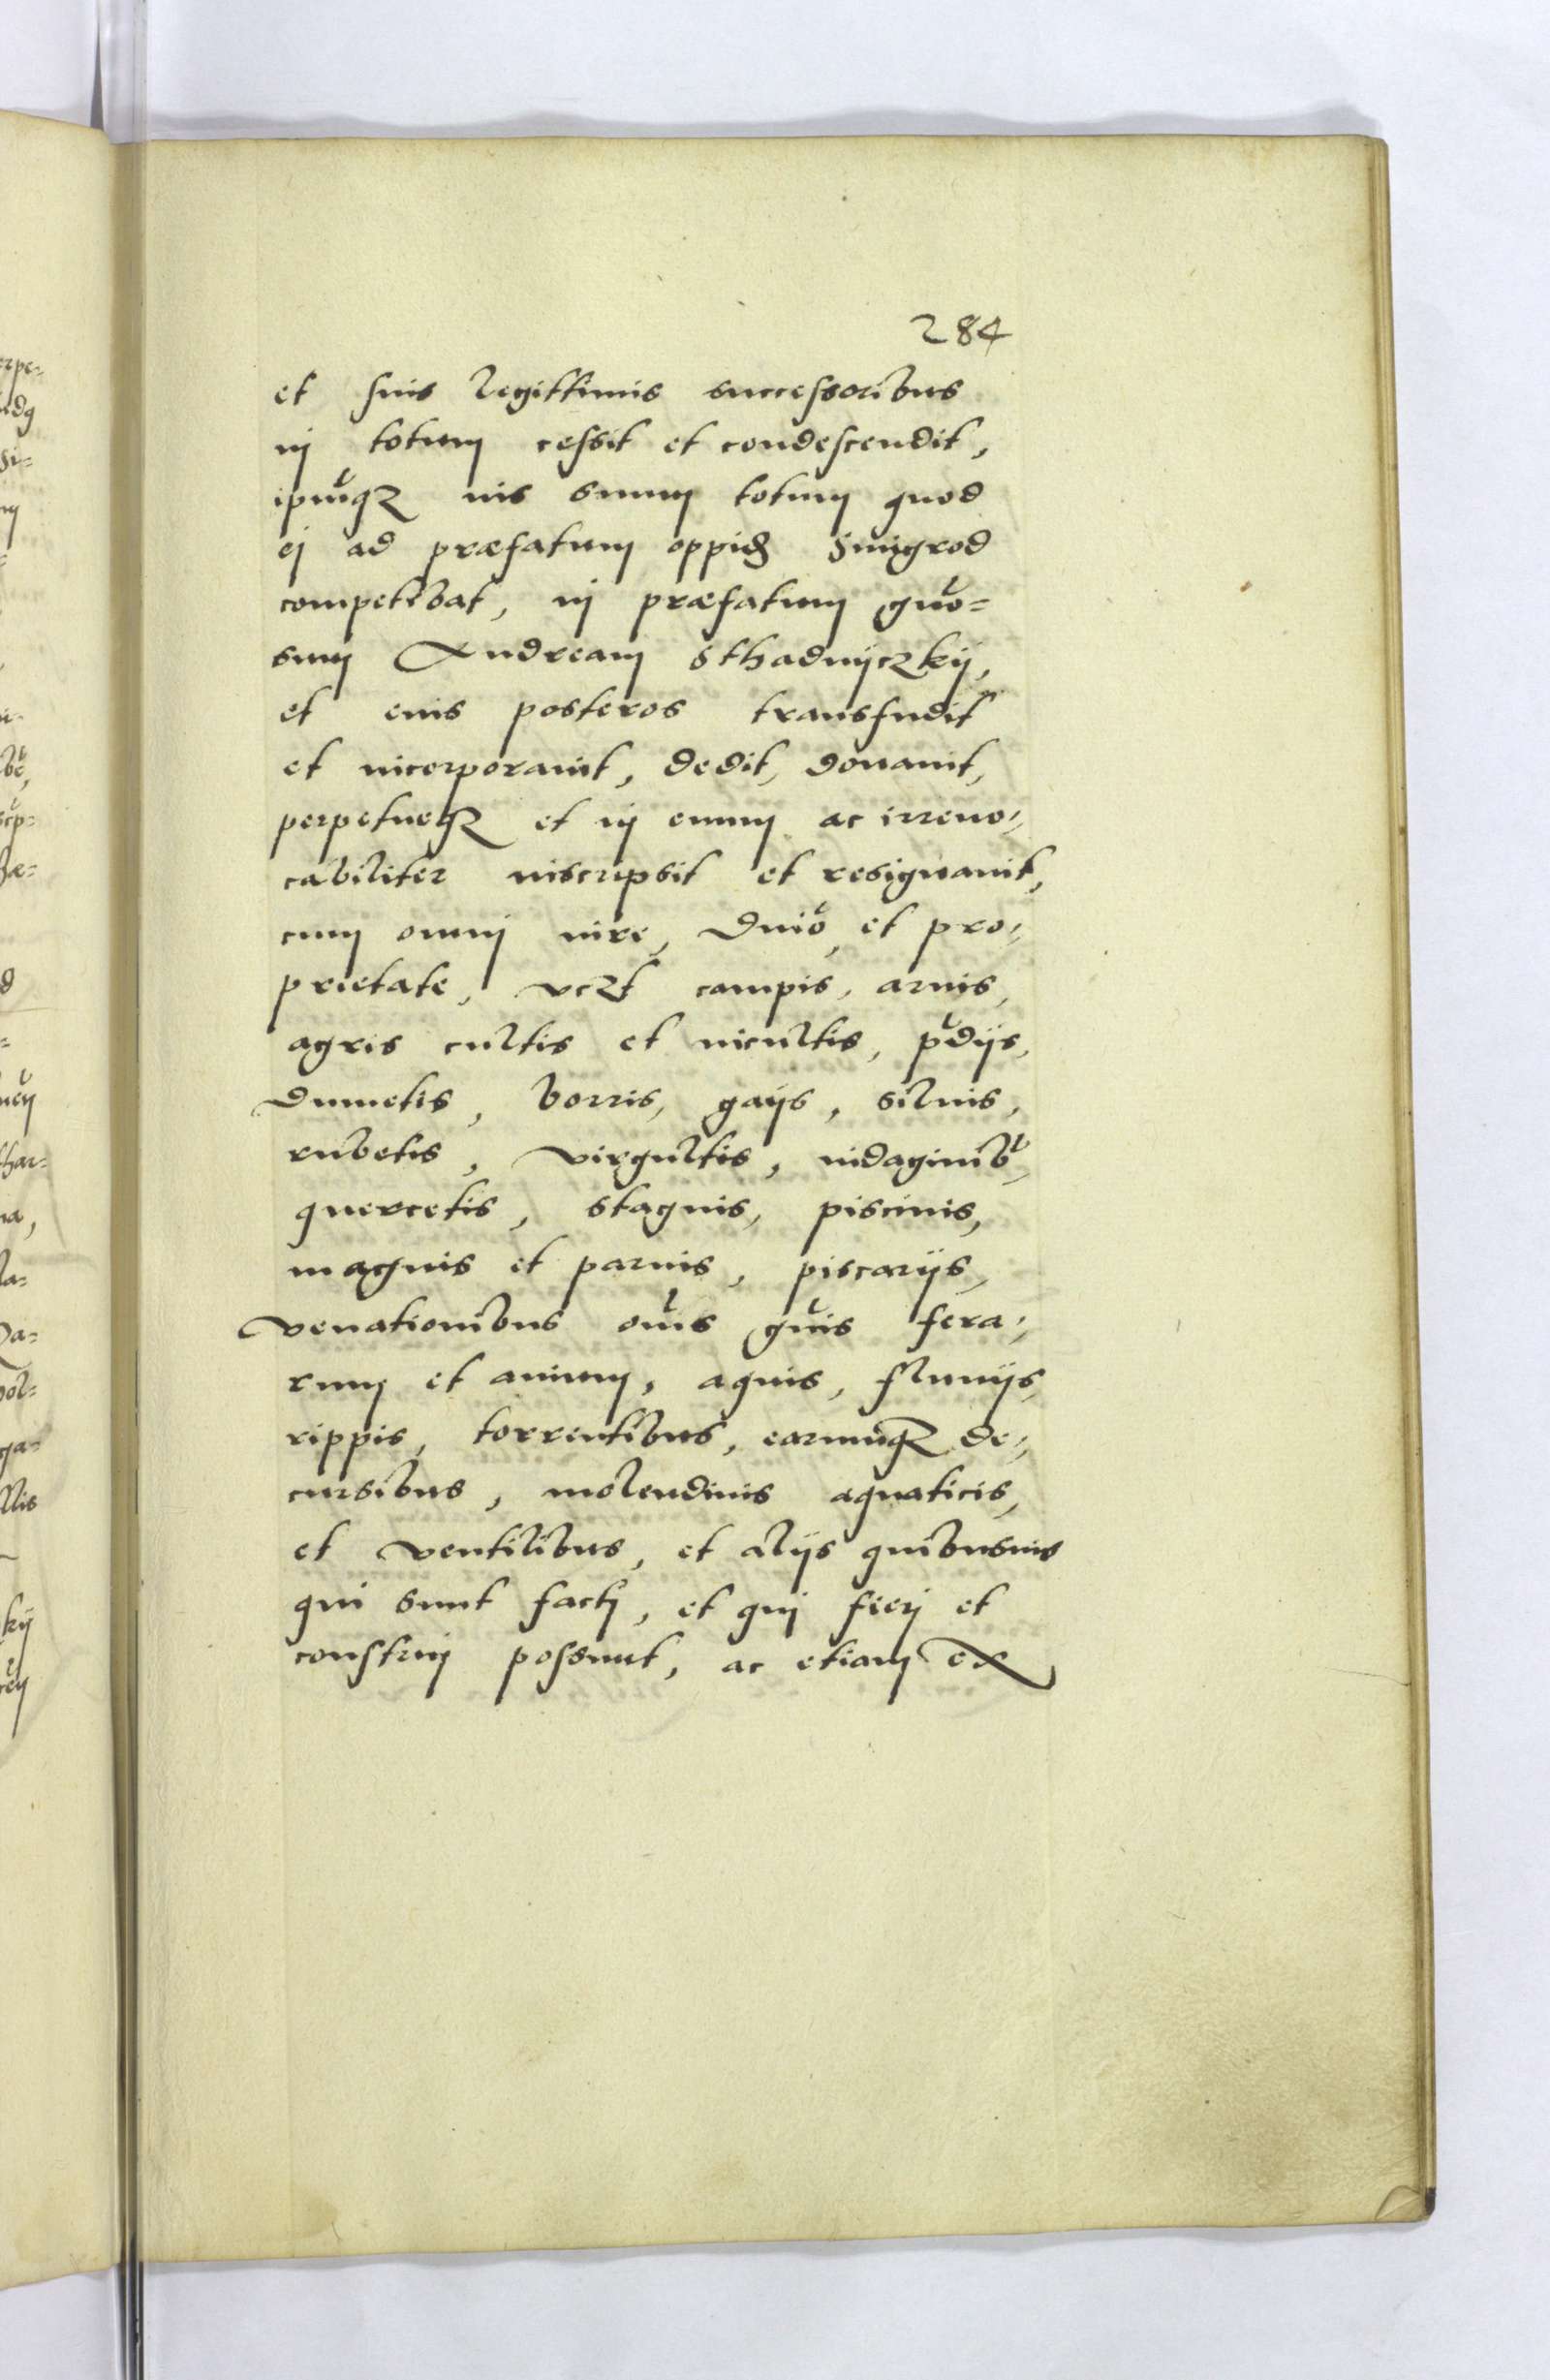 284
et suis legittimis successoribus
in totum cessit et condescendit,
ipm̃qz ius suum totum quod
ei ad præfatum oppid Smigrod
competibat, in præfatum gño-
sum Andream Sthadnyczkij,
et eius posteros transfudit
et incorporavit, dedit, donavit,
perpetueqz et in evum ac irrevo-
cabiliter inscripsit et resignavit,
cum omni iure, dnio, et pro-
prietate, vczt campis, arvis,
agris cultis et incultis, p̃dijs,
dumetis, borris, gaijs, silvis,
rubetis, virgultis, indaginib,
quercetis, stagnis, piscinis,
magnis et parvis, piscarijs,
venationibus om̃is gñis fera-
rum et avium, aquis, fluvijs,
rippis, torrentibus, earumqz de-
cursibus, molendinis aquaticis,
et ventilibus, et alijs quibusvis
qui sunt facti, et qui fieri et
construi possunt, ac etiam ex